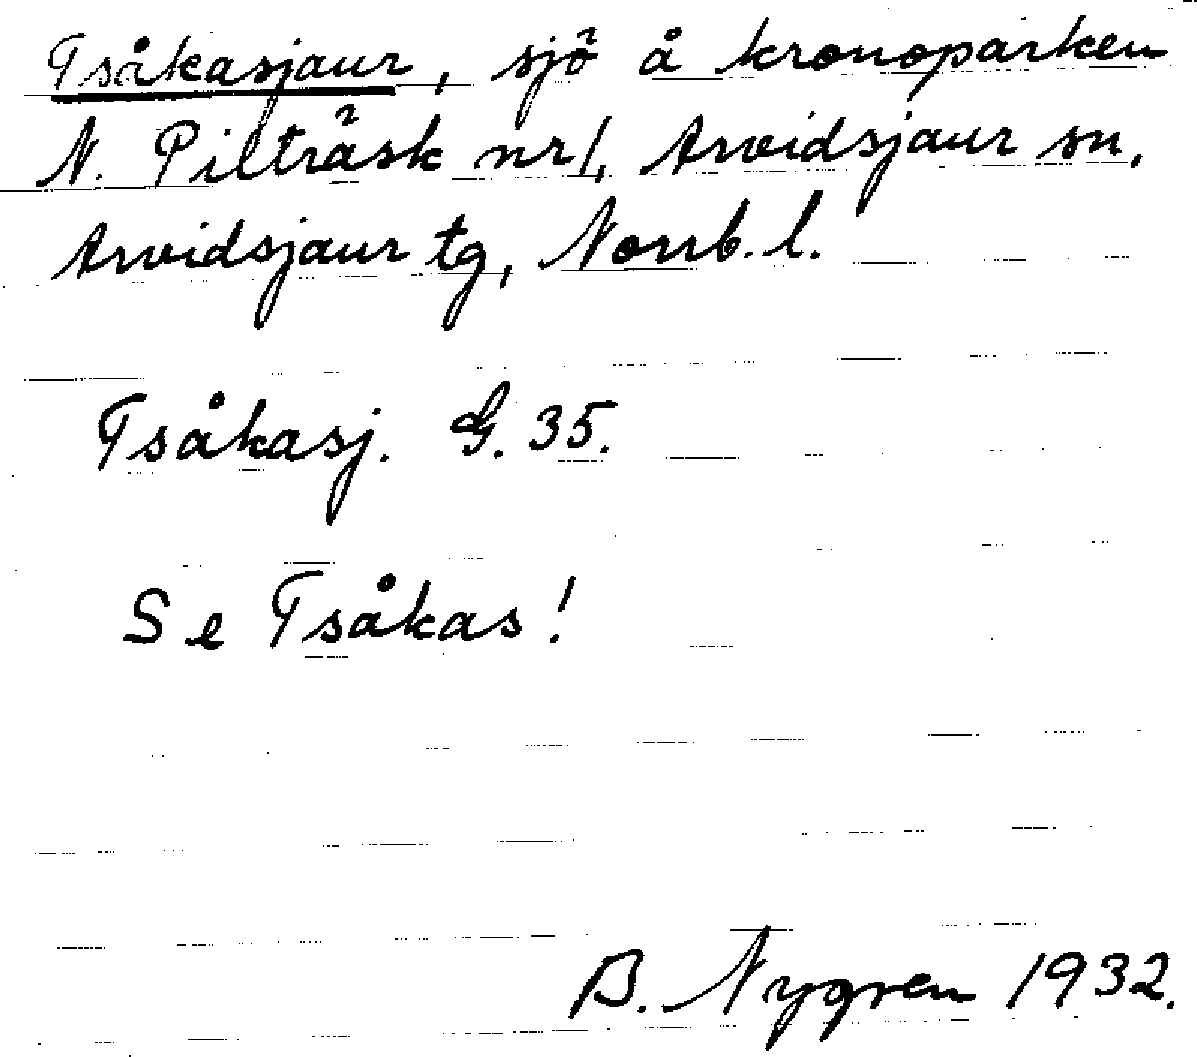 Tsåkasjaur, sjö å kronoparken
N. Pilträsk nr 1, Arvidsjaur sn,
Arvidsjaur tg, Norrb. l.
Tsåkasj. G. 35.
Se Tsåkas!
B. Nygren 1932.